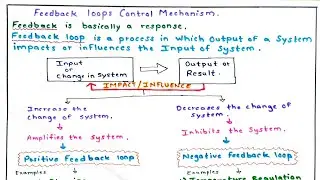 Feedback loops Control Mechanism.
Feedback is basically a response.
Feedback loop is a process in which Output of a System
impacts or influences the Input of System.
Input or change in System
Output or Result.
IMPACT/INFLUENCE
Increase the change of system.
Decreases the change of system.
Amplifies the System.
Inhibits the System.
Positive Feedback loop
Negative Feedback loop
Examples
Examples
Temperature Regulation